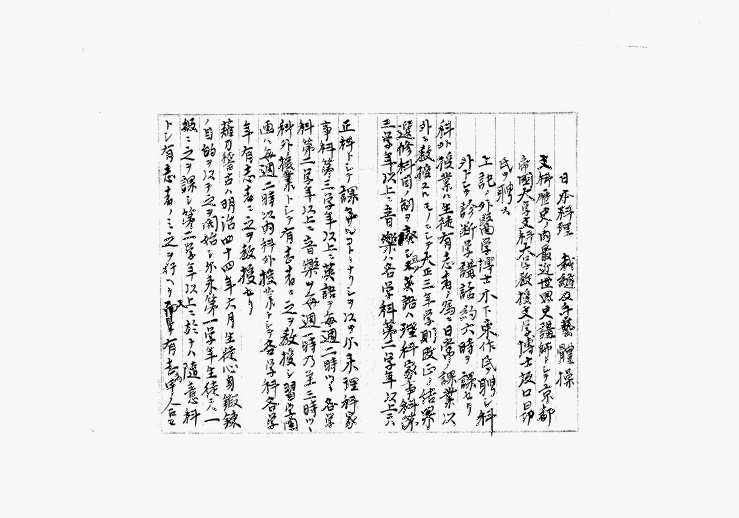 日本料理 裁縫及手藝 體操
文科歴史ノ内最近世界史講師トシテ京都
帝國大学文科大学教授文学博士坂口昂
氏ヲ聘ス
上記ノ外醫学博士木下東作氏ヲ聘シ科
外トシテ診断学講話約六時ヲ課セリ
科外授業ハ生徒有志者ノ為ニ日常ノ課業以
外ニ教授スルモノニシテ大正三年学則改正ノ結果
選修科目制ヲ廃シ英語ハ理科家事科第
三学年以上ニ音樂ハ各学科第二学年以上ニハ
正科トシテ課スルコトトナリシヲ以テ尓来理科家
事科第三学年以上ニ英語ヲ毎週二時ツヽ各学
科第二学年以上ニ音樂ヲ毎週一時乃至三時ツヽ
科外授業トシテ有志者ニ之ヲ教授シ習字圖
画ハ毎週二時以内科外授業トシテ各学科各学
年有志者ニ之ヲ教授セリ
薙刀稽古ハ明治四十四年六月生徒心身鍛錬
ノ目的ヲ以テ之ヲ開始シ尓来第一学年生徒ニハ一
般ニ之ヲ課シ第二学年以上ニ於テハ隨意科
トシ有志者ノミ之ヲ行ヘリ 有志者